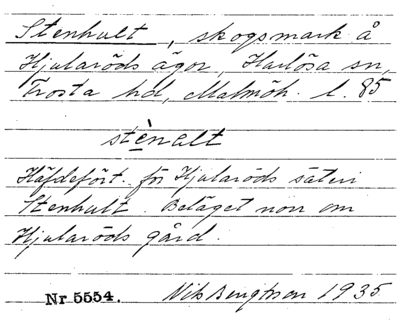 Stenhult, skogsmark å
Hjularöds ägor, Harlösa sn,
Frosta hd, Malmöh. l. 85
stènalt
Häfdefört. för Hjularöds säteri
Stenhult. Beläget norr om
Hjularöds gård.
Nr 5554. Nils Bengtsson 1935